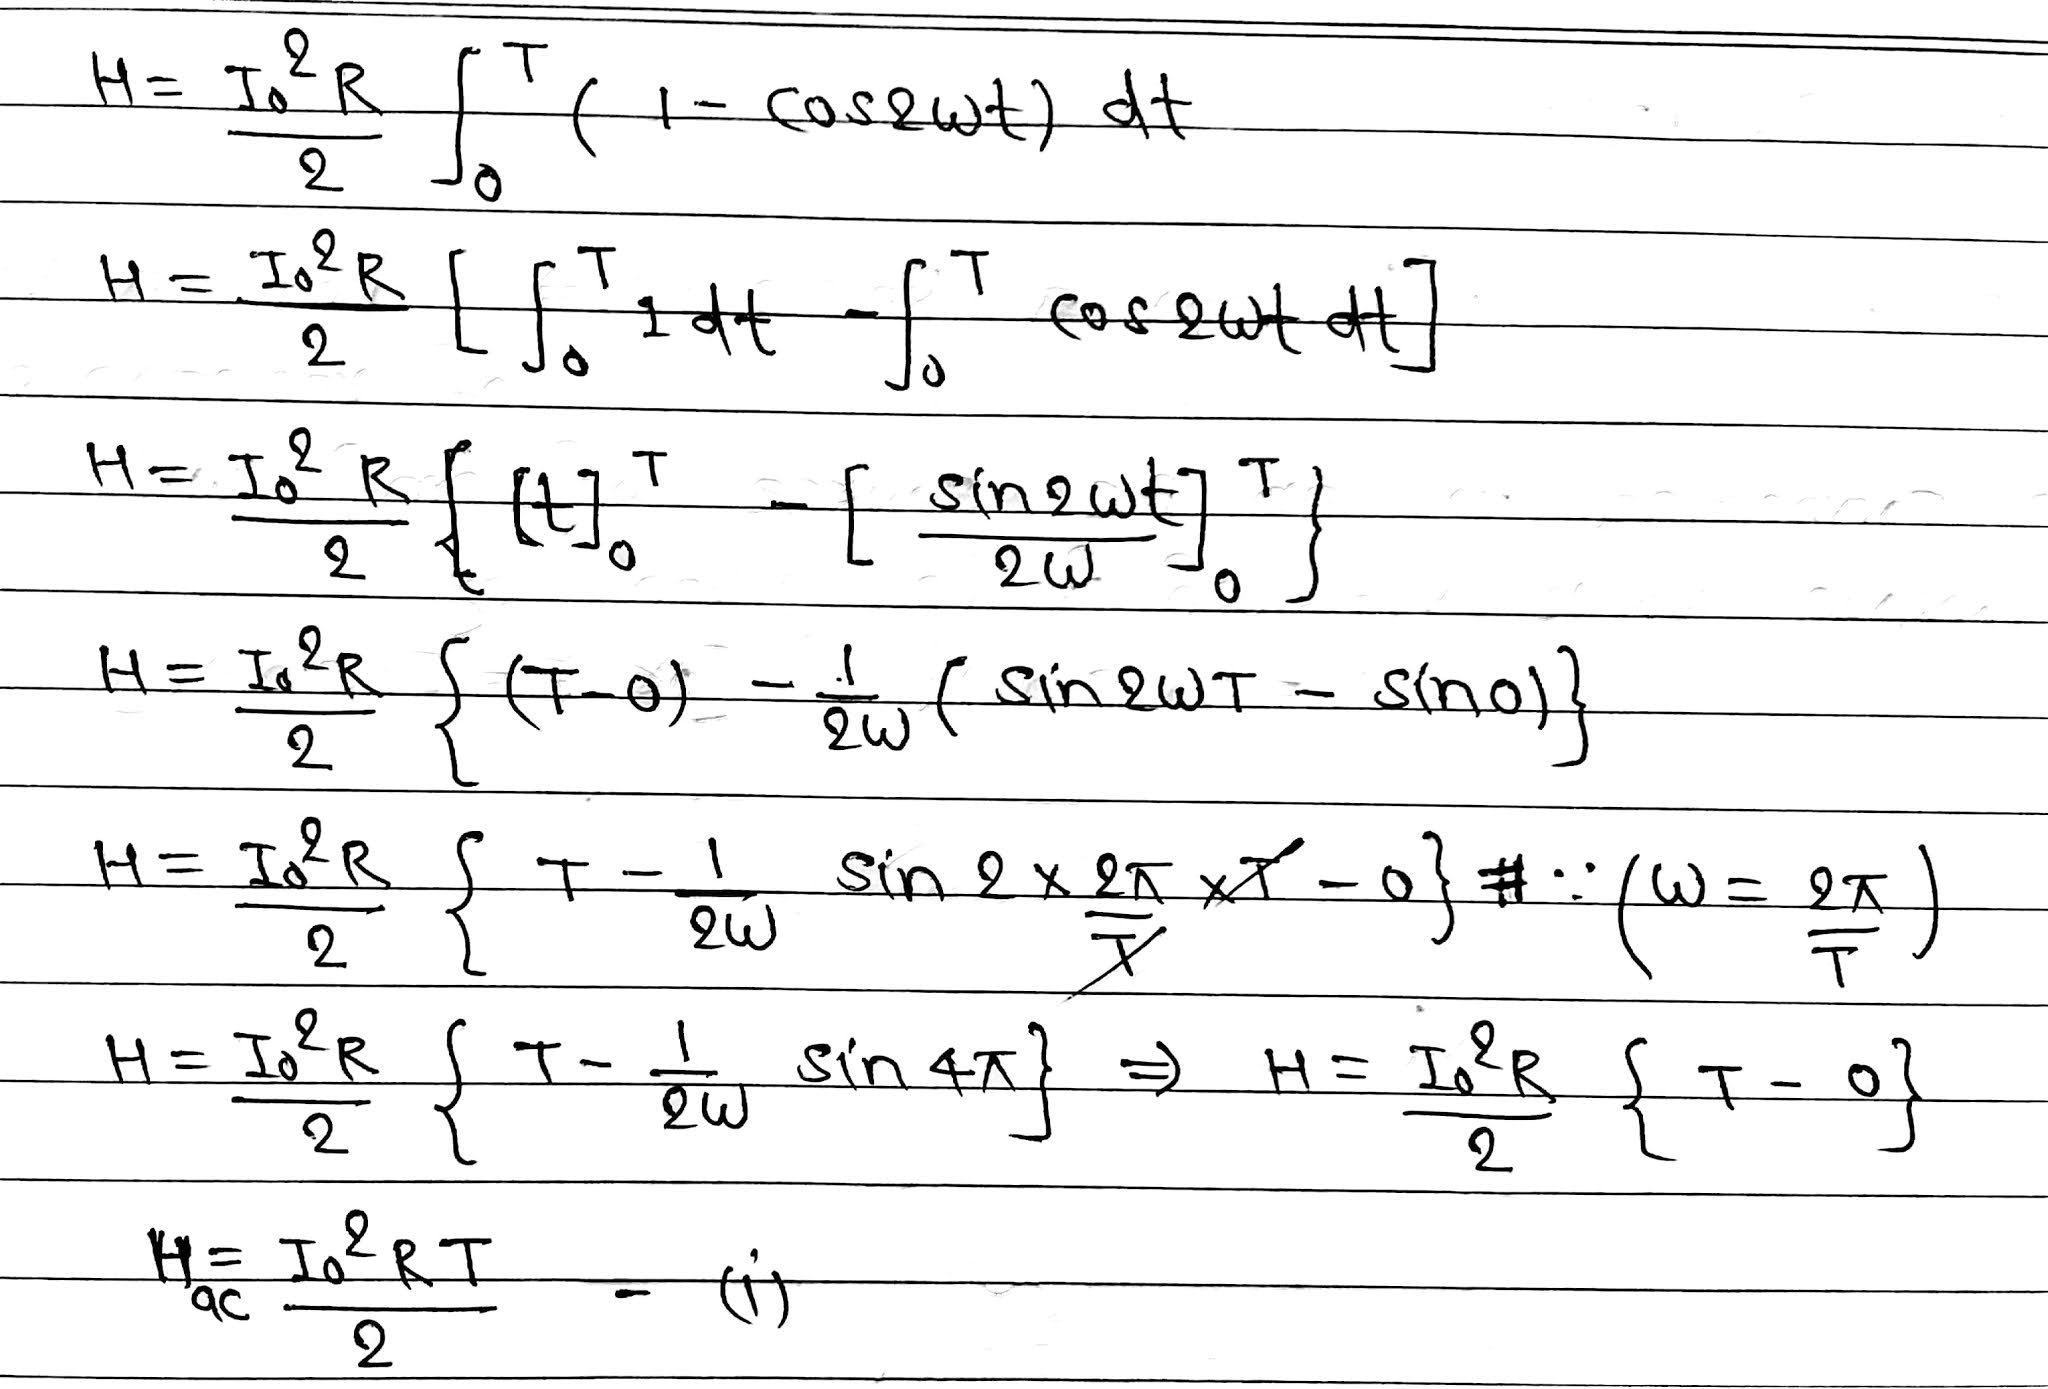 H = I₀²R/2 ∫₀ᵀ (1 - cos2ωt) dt
H = I₀²R/2 [ ∫₀ᵀ 1 dt - ∫₀ᵀ cos2ωt dt ]
H = I₀²R/2 { [t]₀ᵀ - [ sin2ωt/2ω ]₀ᵀ }
H = I₀²R/2 { (T-0) - 1/2ω ( sin2ωT - sin0) }
H = I₀²R/2 { T - 1/2ω sin 2 × 2π/T × T - 0 } # ∵ (ω = 2π/T)
H = I₀²R/2 { T - 1/2ω sin 4π } ⇒ H = I₀²R/2 { T - 0 }
H_ac = I₀²RT/2 - (i)